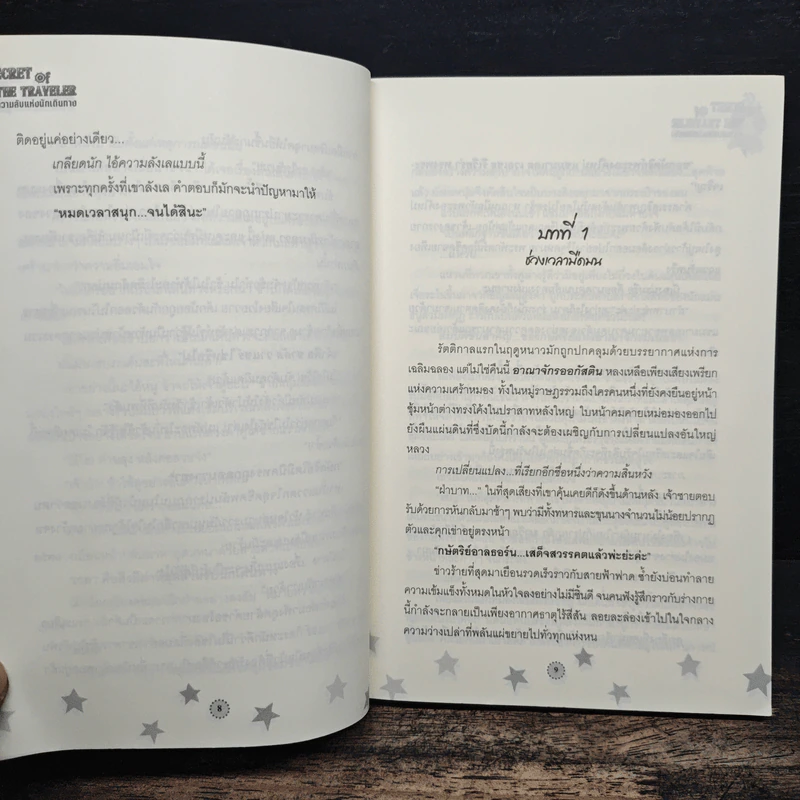 SECRET of
THE TRAVELER
ความลับแห่งนักเดินทาง
ติดอยู่แค่อย่างเดียว...
เกลียดนัก ไอ้ความลังเลแบบนี้
เพราะทุกครั้งที่เขาลังเล คำตอบก็มักจะนำปัญหามาให้
“หมดเวลาสนุก...จนได้สินะ”
8
บทที่ 1
ช่วงเวลามืดมน
รัตติกาลแรกในฤดูหนาวมักถูกปกคลุมด้วยบรรยากาศแห่งการ
เฉลิมฉลอง แต่ไม่ใช่คืนนี้ อาณาจักรออกัสติน หลงเหลือเพียงเสียงเพรียก
แห่งความเศร้าหมอง ทั้งในหมู่ราษฎรรวมถึงใครคนหนึ่งที่ยังคงยืนอยู่หน้า
ซุ้มหน้าต่างทรงโค้งในปราสาทหลังใหญ่ ใบหน้าคมคายเหม่อมองออกไป
ยังผืนแผ่นดินที่ซึ่งบัดนี้กำลังจะต้องเผชิญกับการเปลี่ยนแปลงอันใหญ่
หลวง
การเปลี่ยนแปลง...ที่เรียกอีกชื่อหนึ่งว่าความสิ้นหวัง
“ฝ่าบาท...” ในที่สุดเสียงที่เขาคุ้นเคยดีก็ดังขึ้นด้านหลัง เจ้าชายตอบ
รับด้วยการหันกลับมาช้าๆ พบว่ามีทั้งทหารและขุนนางจำนวนไม่น้อยปรากฏ
ตัวและคุกเข่าอยู่ตรงหน้า
“กษัตริย์อาลธอร์น...เสด็จสวรรคตแล้วพ่ะย่ะค่ะ”
ข่าวร้ายที่สุดมาเยือนรวดเร็วราวกับสายฟ้าฟาด ซ้ำยังบ่อนทำลาย
ความเข้มแข็งทั้งหมดในหัวใจลงอย่างไม่มีชิ้นดี จนคนฟังรู้สึกราวกับร่างกาย
นี้กำลังจะกลายเป็นเพียงอากาศธาตุไร้สีสัน ลอยละล่องเข้าไปในใจกลาง
ความว่างเปล่าที่พลันแผ่ขยายไปทั่วทุกแห่งหน
9